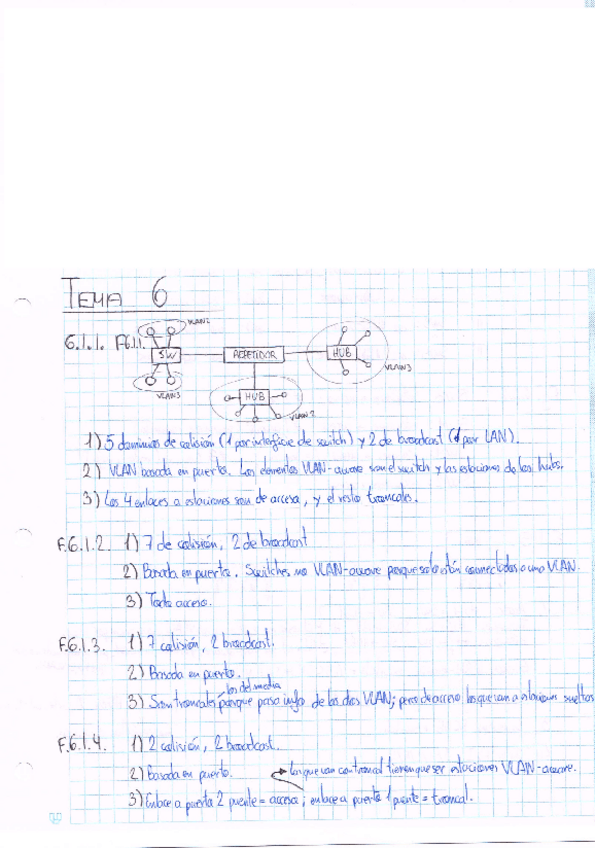 TEMA 6
6.1.1. F.6.1.1.
VLAN2
SW
VLAN3
REPETIDOR
HUB
VLAN3
HUB
VLAN 2
1) 5 dominios de colisión (1 por interfície de switch) y 2 de broadcast (1 por LAN).
2) VLAN basada en puerto. Los elementos VLAN-aware son el switch y las estaciones de los hubs.
3) Los 4 enlaces a estaciones son de acceso, y el resto troncales.
F.6.1.2. 1) 7 de colisión, 2 de broadcast
2) Basada en puerto. Switches no VLAN-aware porque solo están connectados a una VLAN.
3) Todo acceso.
F.6.1.3. 1) 7 colisión, 2 broadcast.
2) Basada en puerto.
los del media
3) Son troncales porque pasa info de las dos VLAN; pero de acceso los que van a estaciones sueltas
F.6.1.4. 1) 2 colisión, 2 broadcast.
2) Basada en puerto. los que van con troncal tienen que ser estaciones VLAN-aware.
3) Enlace a puerto 2 puente = acceso; enlace a puerto 1 puente = troncal.